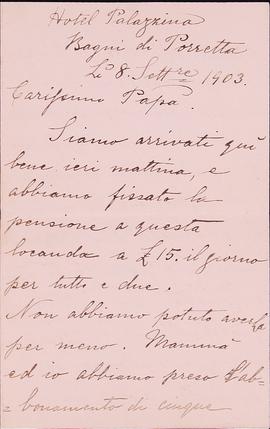 Hotel Palazzina
Bagni di Porretta
Lì 8. Settre 1903.
Carissimo Papà.
Siamo arrivati quì
bene ieri mattina, e
abbiamo fissato la
pensione a questa
locanda a £15. il giorno
per tutte e due.
Non abbiamo potuto averla
per meno. Mammà
ed io abbiamo preso l'ab-
=bonamento di cinque